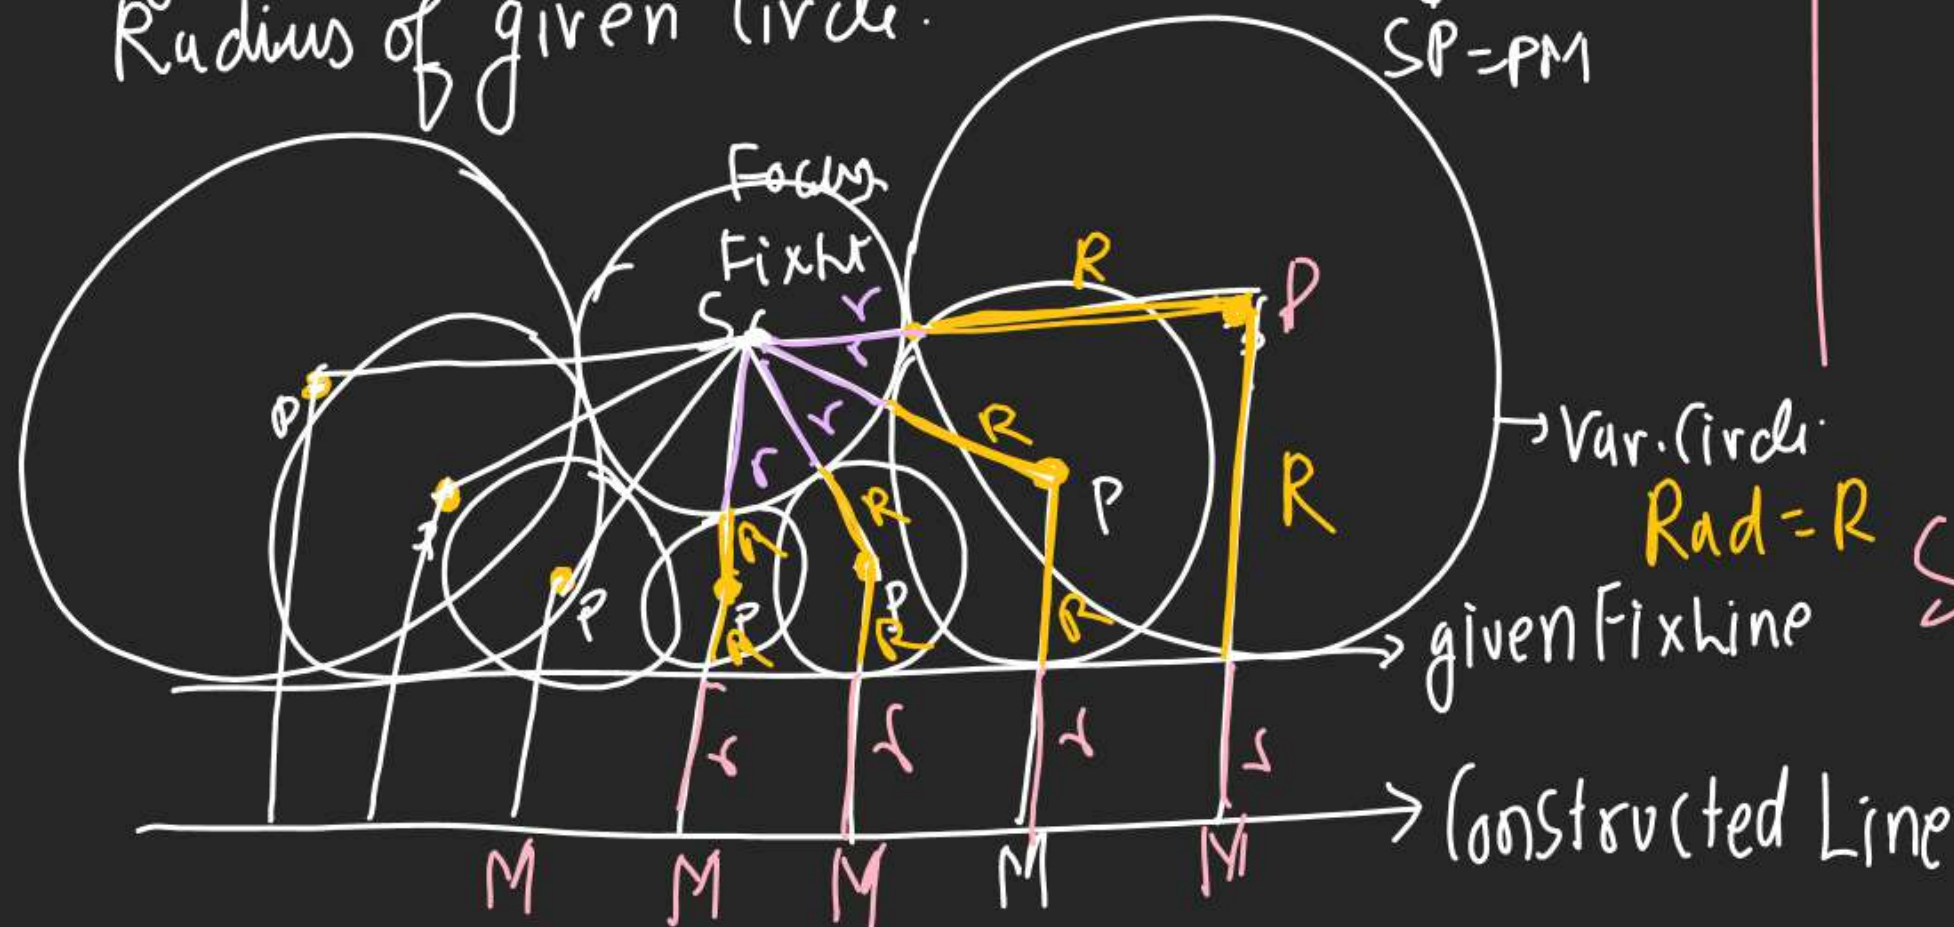 Radius of given Circle.
SP=PM
Focus
Fix Pt
S
r
R
P
r
P
r
R
P
R
r
R
→ Var. Circle
Rad = R
R
P
P
R
P
R
R
→ given Fix Line
r
r
r
r
→ Constructed Line
M
M
M
M
M